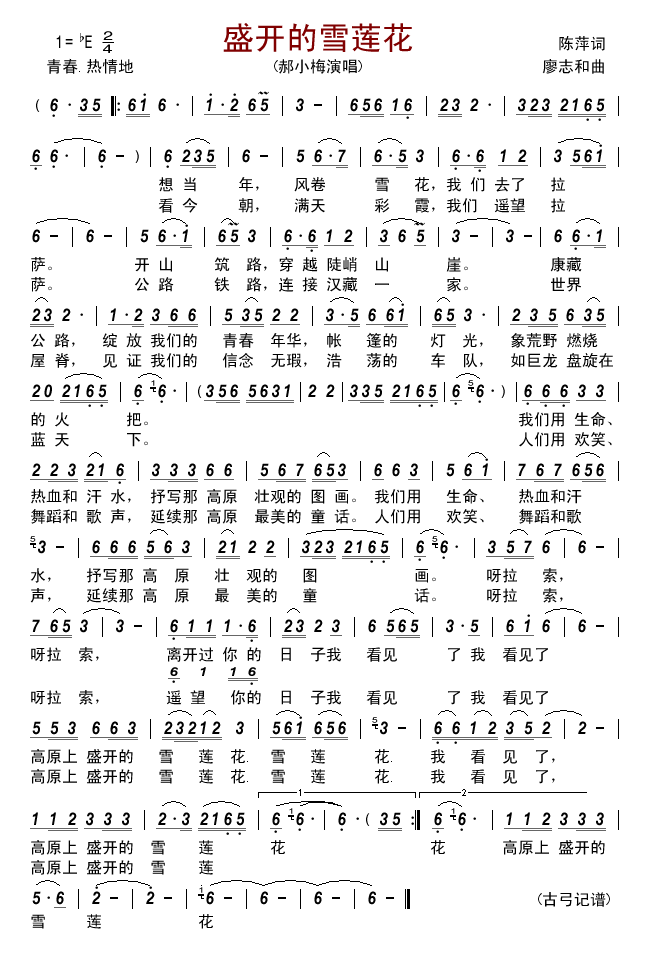 盛开的雪莲花
1= ♭E 2/4
陈萍词
青春. 热情地
(郝小梅演唱)
廖志和曲
( 6 · 35 |: 61 6 · | 1 · 2 65 | 3 - | 656 16 | 23 2 · | 323 2165 |
6 6 · | 6 - ) | 6 235 | 6 - | 5 6·7 | 6·5 3 | 6·6 12 | 3 561 |
想 当 年， 风卷 雪 花，我 们 去了 拉
看 今 朝， 满天 彩 霞，我们 遥望 拉
6 - | 6 - | 5 6·1 | 65 3 | 6·6 12 | 3 6 5 | 3 - | 3 - | 6 6·1 |
萨。 开 山 筑 路，穿 越 陡峭 山 崖。 康藏
萨。 公 路 铁 路，连 接 汉藏 一 家。 世界
23 2 · | 1·2 3 6 6 | 235 22 | 3·5 661 | 65 3 · | 235 635 |
公 路， 绽 放 我们的 青春 年华，帐 篷的 灯 光， 象荒野 燃烧
屋 脊， 见 证 我们的 信念 无瑕，浩 荡的 车 队， 如巨龙 盘旋在
20 2165 | 6 1 6 · | (356 5631 | 2 2 | 335 2165 | 6 5 6 · ) | 666 33 |
的 火 把。 我们用 生命、
蓝 天 下。 人们用 欢笑、
223 21 6 | 333 66 | 567 653 | 663 | 561 | 767 656 |
热血和 汗 水，抒写那 高原 壮观的 图 画。我们用 生命、 热血和汗
舞蹈和 歌 声，延续那 高原 最美的 童 话。人们用 欢笑、 舞蹈和歌
5 3 - | 666 563 | 21 22 | 323 2165 | 6 5 6 · | 357 6 | 6 - |
水， 抒写那 高 原 壮 观的 图 画。 呀拉 索，
声， 延续那 高 原 最 美的 童 话。 呀拉 索，
7 65 3 | 3 - | 611 1·6 | 23 23 | 6 565 | 3·5 | 61 6 | 6 - |
呀拉 索， 离开过 你 的 日 子我 看见 了 我 看见了
6 1 16
呀拉 索， 遥 望 你的 日 子我 看见 了 我 看见了
553 663 | 23212 3 | 561 656 | 5 3 - | 6612 352 | 2 - |
高原上 盛开的 雪 莲 花. 雪 莲 花. 我 看 见 了，
高原上 盛开的 雪 莲 花. 雪 莲 花. 我 看 见 了，
1 2
112 333 | 2·3 2165 | 6 1 6 · | 6 · ( 35 :| 6 1 6 · | 112 333 |
高原上 盛开的 雪 莲 花 花 高原上 盛开的
高原上 盛开的 雪 莲
5·6 | 2 - | 2 - | i 6 - | 6 - | 6 - | 6 - ‖ (古弓记谱)
雪 莲 花